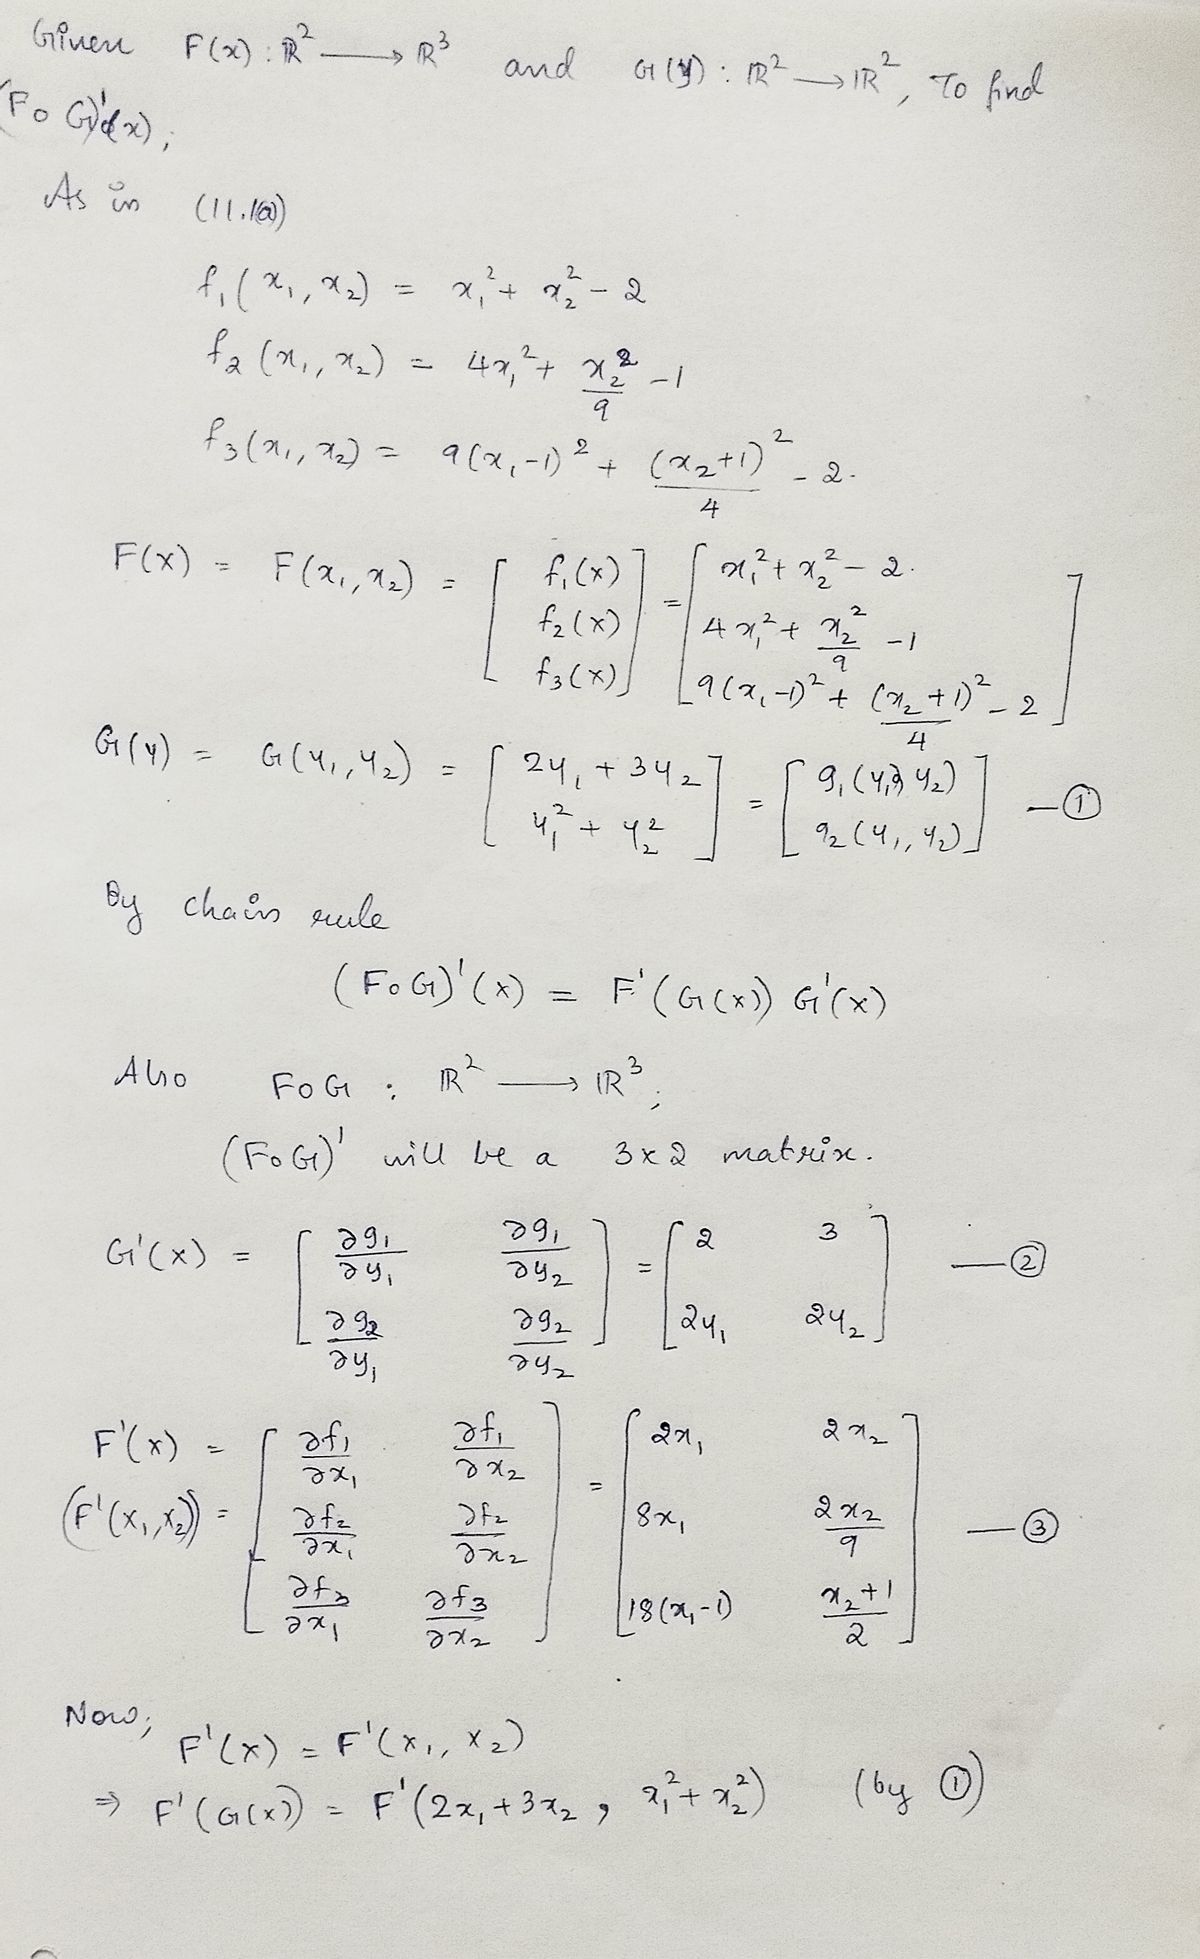 Given F(x) : ℝ² ⟶ ℝ³ and G(y) : ℝ² ⟶ ℝ², To find
(F o G)'(x);
As in (11.1a)
f₁(x₁, x₂) = x₁² + x₂² - 2
f₂(x₁, x₂) = 4x₁² + x₂²/9 - 1
f₃(x₁, x₂) = 9(x₁-1)² + (x₂+1)²/4 - 2.
F(x) = F(x₁, x₂) = [f₁(x) ; f₂(x) ; f₃(x)] = [x₁² + x₂² - 2. ; 4x₁² + x₂²/9 - 1 ; 9(x₁-1)² + (x₂+1)²/4 - 2]
G(y) = G(y₁, y₂) = [2y₁ + 3y₂ ; y₁² + y₂²] = [g₁(y₁, y₂) ; g₂(y₁, y₂)] — ①
By chain rule
(FoG)'(x) = F'(G(x)) G'(x)
Also FoG : ℝ² ⟶ ℝ³;
(FoG)' will be a 3x2 matrix.
G'(x) = [∂g₁/∂y₁ ∂g₁/∂y₂ ; ∂g₂/∂y₁ ∂g₂/∂y₂] = [2 3 ; 2y₁ 2y₂] — ②
F'(x) =
(F'(x₁,x₂)) = [∂f₁/∂x₁ ∂f₁/∂x₂ ; ∂f₂/∂x₁ ∂f₂/∂x₂ ; ∂f₃/∂x₁ ∂f₃/∂x₂] = [2x₁ 2x₂ ; 8x₁ 2x₂/9 ; 18(x₁-1) x₂+1/2] — ③
Now; F'(x) = F'(x₁, x₂)
⇒ F'(G(x)) = F'(2x₁+3x₂, x₁² + x₂²) (by ①)